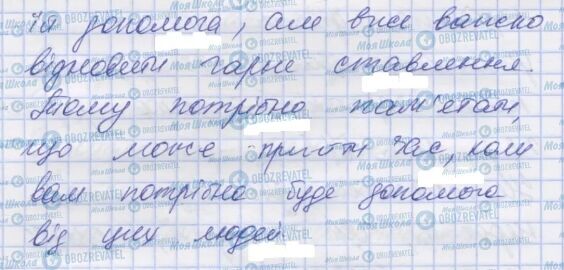 їй допомога, але вже важко
відновити гарне ставлення.
Тому потрібно пам'ятати,
що може прийти час, коли
вам потрібно буде допомога
від цих людей